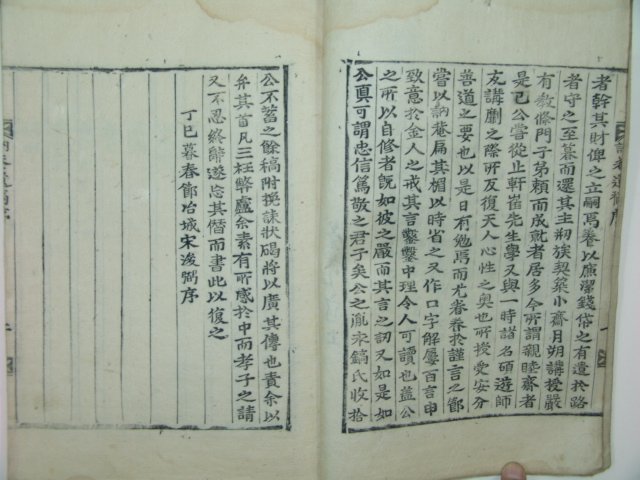 者幹其財俾之立嗣焉養以廉潔錢帒之有遺於路
者守之至暮而還其主刱族契築小齋月朔講授嚴
有教條門子弟頼而成就者居多今所謂親睦齋者
是已公嘗從止軒崔先生學又與一時諸名碩遊師
友講劘之際所反復天人心性之奧也所授受安分
善道之要也以是日有勉焉而尤眷眷於謹言之鄙
嘗以訥巷扁其楣以時省之又作口字解屢百言申
致意於金人之戒其言鑿鑿中理令人可讀也盖公
之所以自修者旣如彼之嚴而其言之訒又如是如
公眞可謂忠信篤敬之君子矣公之胤永鎬氏收拾
公不蓄之餘稿附挽誄狀碣將以廣其傳也責余以
弁其首凡三枉弊廬余素有所感於中而孝子之請
又不忍終辭遂忘其僭而書此以復之
丁巳暮春節冶城宋浚弼序